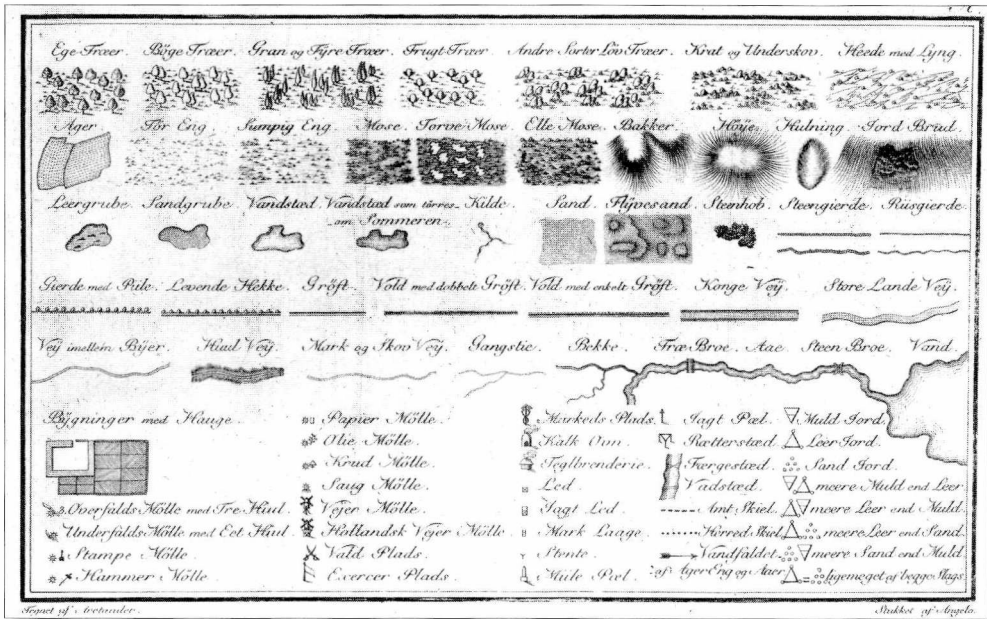 Ege Træer. Böge Træer. Gran og Fÿre Træer. Frugt Træer. Andre Sorter Löv Træer. Krat og Underskov. Heede med Lÿng.
Ager. Tör Eng. Sumpig Eng. Mose. Torve Mose. Elle Mose. Bakker. Höÿe. Hulning. Jord Brud.
Leergrube. Sandgrube. Vandstæd. Vandstæd som törres om Sommeren. Kilde. Sand. Flÿvesand. Steenhob. Steengierde. Riisgierde.
Gierde med Pile. Levende Hekke. Gröft. Vold med dobbelt Gröft. Vold med enkelt Gröft. Konge Veÿ. Store Lande Veÿ.
Veÿ imellem Bÿer. Hiul Veÿ. Mark og Skov Veÿ. Gangstie. Bekke. Træ Broe. Aae. Steen Broe. Vand.
Bÿgninger med Hauge.
Overfalds Mölle med Tre Hiul.
Underfalds Mölle med Eet Hiul.
Stampe Mölle.
Hammer Mölle.
Papier Mölle.
Olie Mölle.
Krud Mölle.
Saug Mölle.
Vejer Mölle.
Hollandsk Vejer Mölle.
Vald Plads.
Exercer Plads.
Markeds Plads.
Kalk Ovn.
Teglbrenderie.
Led.
Jagt Led.
Mark Laage.
Stente.
Mile Pæl.
Jagt Pæl.
Rætterstæd.
Færgestæd.
Vadstæd.
Amt Skiel.
Herred Skiel.
Vandfaldet
af Ager Eng og Aaer.
Muld Jord.
Leer Jord.
Sand Jord.
meere Muld end Leer.
meere Leer end Muld.
meere Leer end Sand.
meere Sand end Muld.
ligemeget af begge Slags.
Tegnet af
Stukket af Angelo.